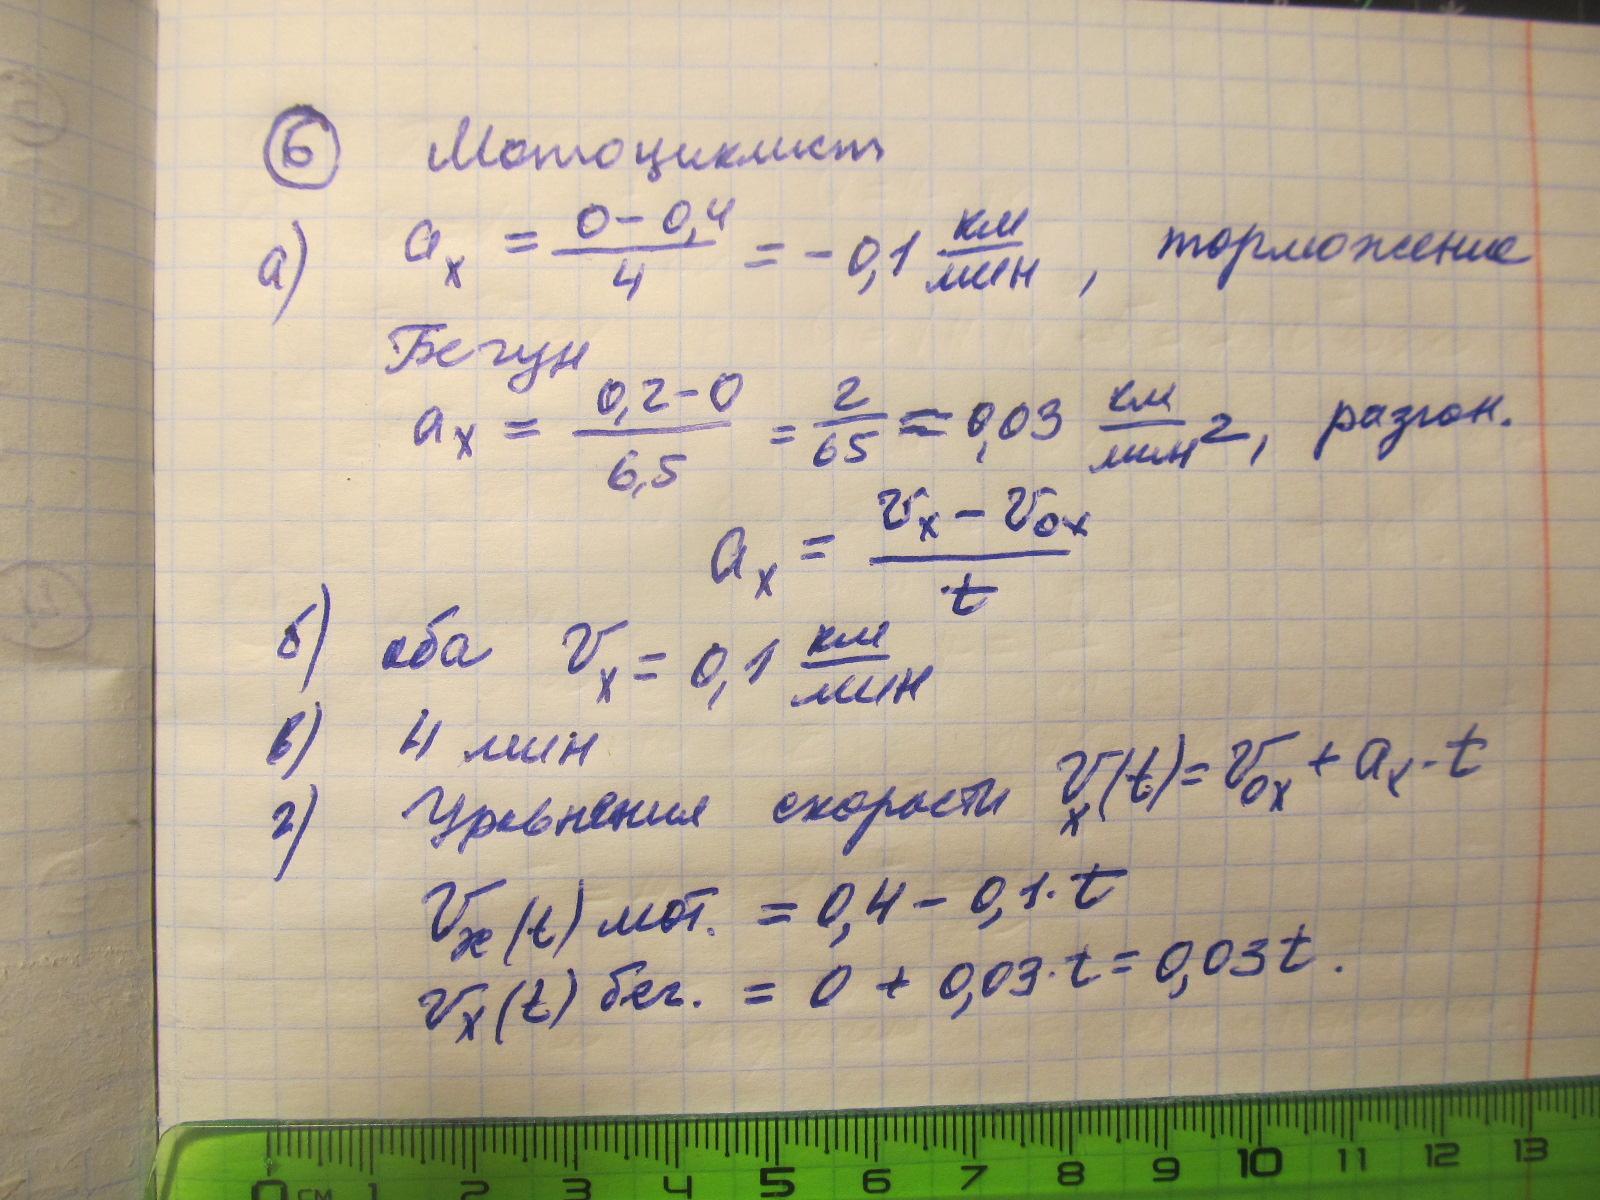 6 Мотоциклист
а) aₓ = (0 − 0,4)/4 = −0,1 км/мин, торможение
Бегун
aₓ = (0,2 − 0)/6,5 = 2/65 = 0,03 км/мин², разгон.
aₓ = (vₓ − v₀ₓ)/t
б) оба vₓ = 0,1 км/мин
в) 4 мин
г) Уравнения скорости vₓ(t) = v₀ₓ + aₓ · t
vₓ(t) мот. = 0,4 − 0,1 · t
vₓ(t) бег. = 0 + 0,03 · t = 0,03t.
0 см 1 2 3 4 5 6 7 8 9 10 11 12 13